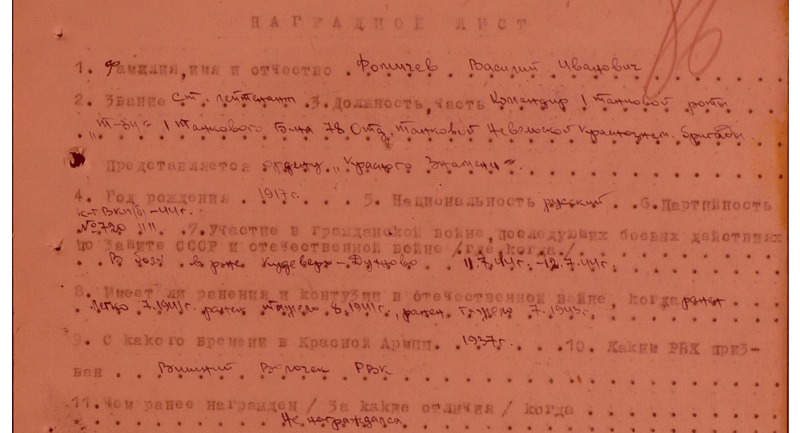 НАГРАДНОЙ ЛИСТ
86
1. Фамилия,имя и отчество Фомичев Василий Иванович
2. Звание Ст. лейтенант 3. Должность, часть Командир 1 танковой роты
„Т-34" 1 танкового б-на 78 Отд. танковой Невельской Краснознам. бригады
Представляется ордену „Красного Знамени".
4. Год рождения 1917г. 5. Национальность русский 6. Партийность
к-т ВКП/б/-44г.
7. Участие в гражданской войне, последующих боевых действиях
по защите СССР и отечественной войне /где, когда/
В боях в р-не Кудеверь-Духново 11.7.44г.-12.7.44г.
8. Имеет ли ранения и контузии в отечественной войне, когда ранен
легко 7.1941г. ранен тяжело 8.1941г., ранен тяжело 7.1943г.
9. С какого времени в Красной Армии. 1937г. 10. Каким РВК приз-
ван Вышний Волочек РВК
11. Чем ранее награжден / За какие отличия / когда
Не награждался